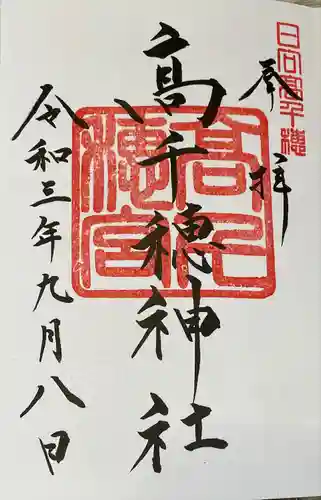 日向高千穂
奉拝
高千穂神社
高千穂宮
令和三年九月八日